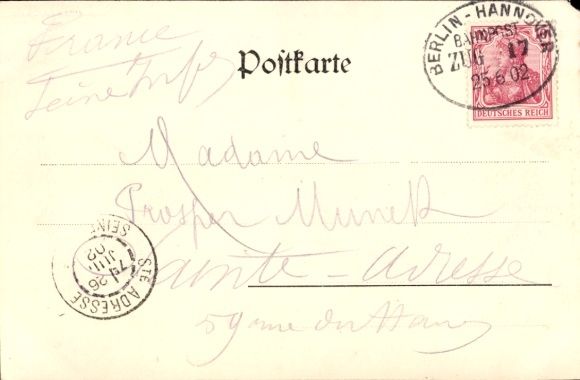 France
Seine Infre
Postkarte
BERLIN - HANNOVER
BAHNPOST
ZUG 17
25.6.02
DEUTSCHES REICH
Madame
Prosper Munck
Sainte-Adresse
59 rue du Havre
STE ADRESSE
26
JUIN
02
SEINE